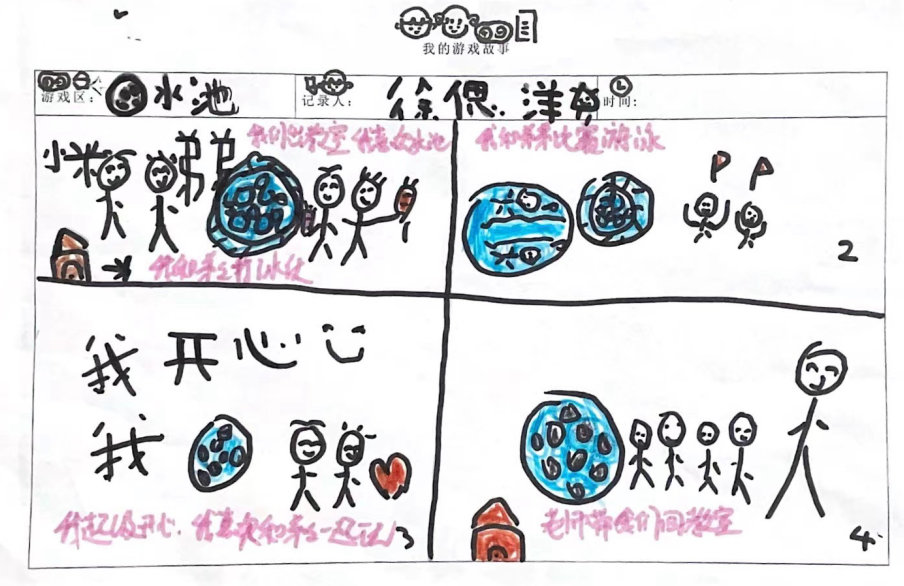 我的游戏故事
游戏区: 水池
记录人: 徐偲洋
时间:
我们出教室 我喜欢水池
小米
弟弟
我和弟弟打水仗
我和弟弟比赛游泳
2
我开心
我
我超级开心,我喜欢和弟弟一起玩
3
老师带我们回教室
4